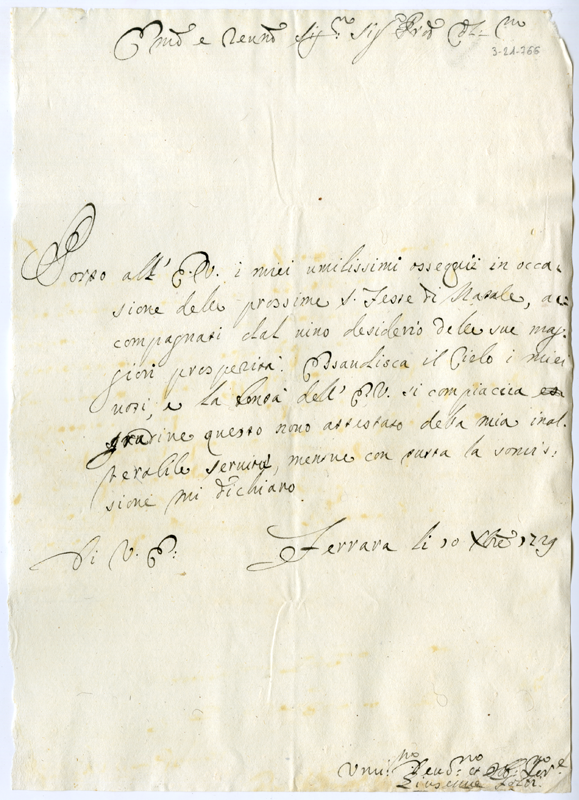 Em̃o e Reumõ Sig.re Sig.r Prõn Col.mo
3-21-766
Porto all' E. V. i miei umilissimi ossequii in occa-
sione delle prossime S. Feste di Natale, ac-
compagnati dal viuo desiderio delle sue mag-
giori prosperità. Essaudisca il Cielo i miei
uoti, e la bontà dell' E.V. si compiaccia
gradire questo nouo attestato della mia inal-
terabile seruitù, mentre con tutta la somis-
sione mi dichiaro
Di V. E.
Ferrara li 10 Xbrẽ 1729
Umi.mo Deuo.mo et Obb.mo Ser.e
Giuseppe